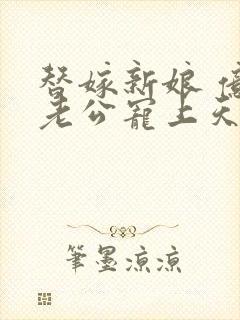 替嫁新娘 億
老公寵上天
筆墨涼涼